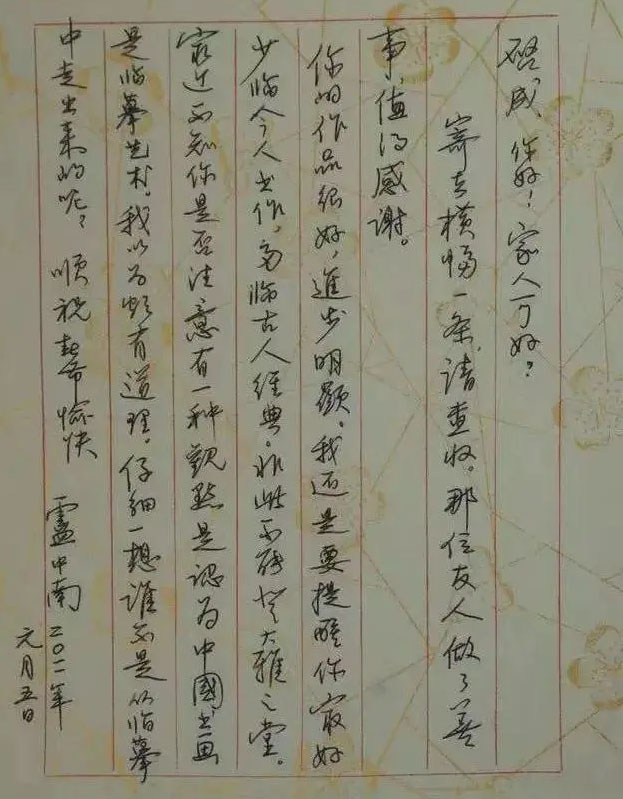 启成 你好！家人可好？
寄去横幅一条，请查收。那位友人做了善
事，值得感谢。
你的作品很好，進步明顯。我还是要提醒你最好
少临今人书作，多临古人经典。非此不能登大雅之堂。
最近不知你是否注意有一种觀點是认为中國书画
是临摹艺术，我以为颇有道理。仔细一想谁不是从临摹
中走出来的呢？ 顺祝 愉快
盧中南 二〇一一年
元月五日